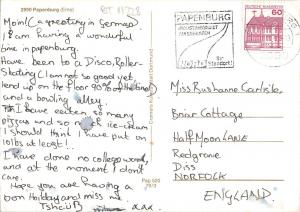 2990 Papenburg (Ems)
Moin! (a greeting in German)
I am having a wonderful
time in papenburg.
Have been to a Disco, Roller-
Skating (I am not so good yet,
I end up on the floor 90% of the time)
and a bowling alley.
I have eaten so many
pizzas and so much ice-cream
I should think I have put on
10lbs at least!..
I have done no college work,
and at the moment I don't
care.
Hope you are having a
bon Holiday and miss me
xxx
Pap 520
PAPENBURG
60
Miss Rushanne Carlisle,
Briar Cottage
Half Moon LANE
Redgrave
Diss
NORFOLK
ENGLAND.